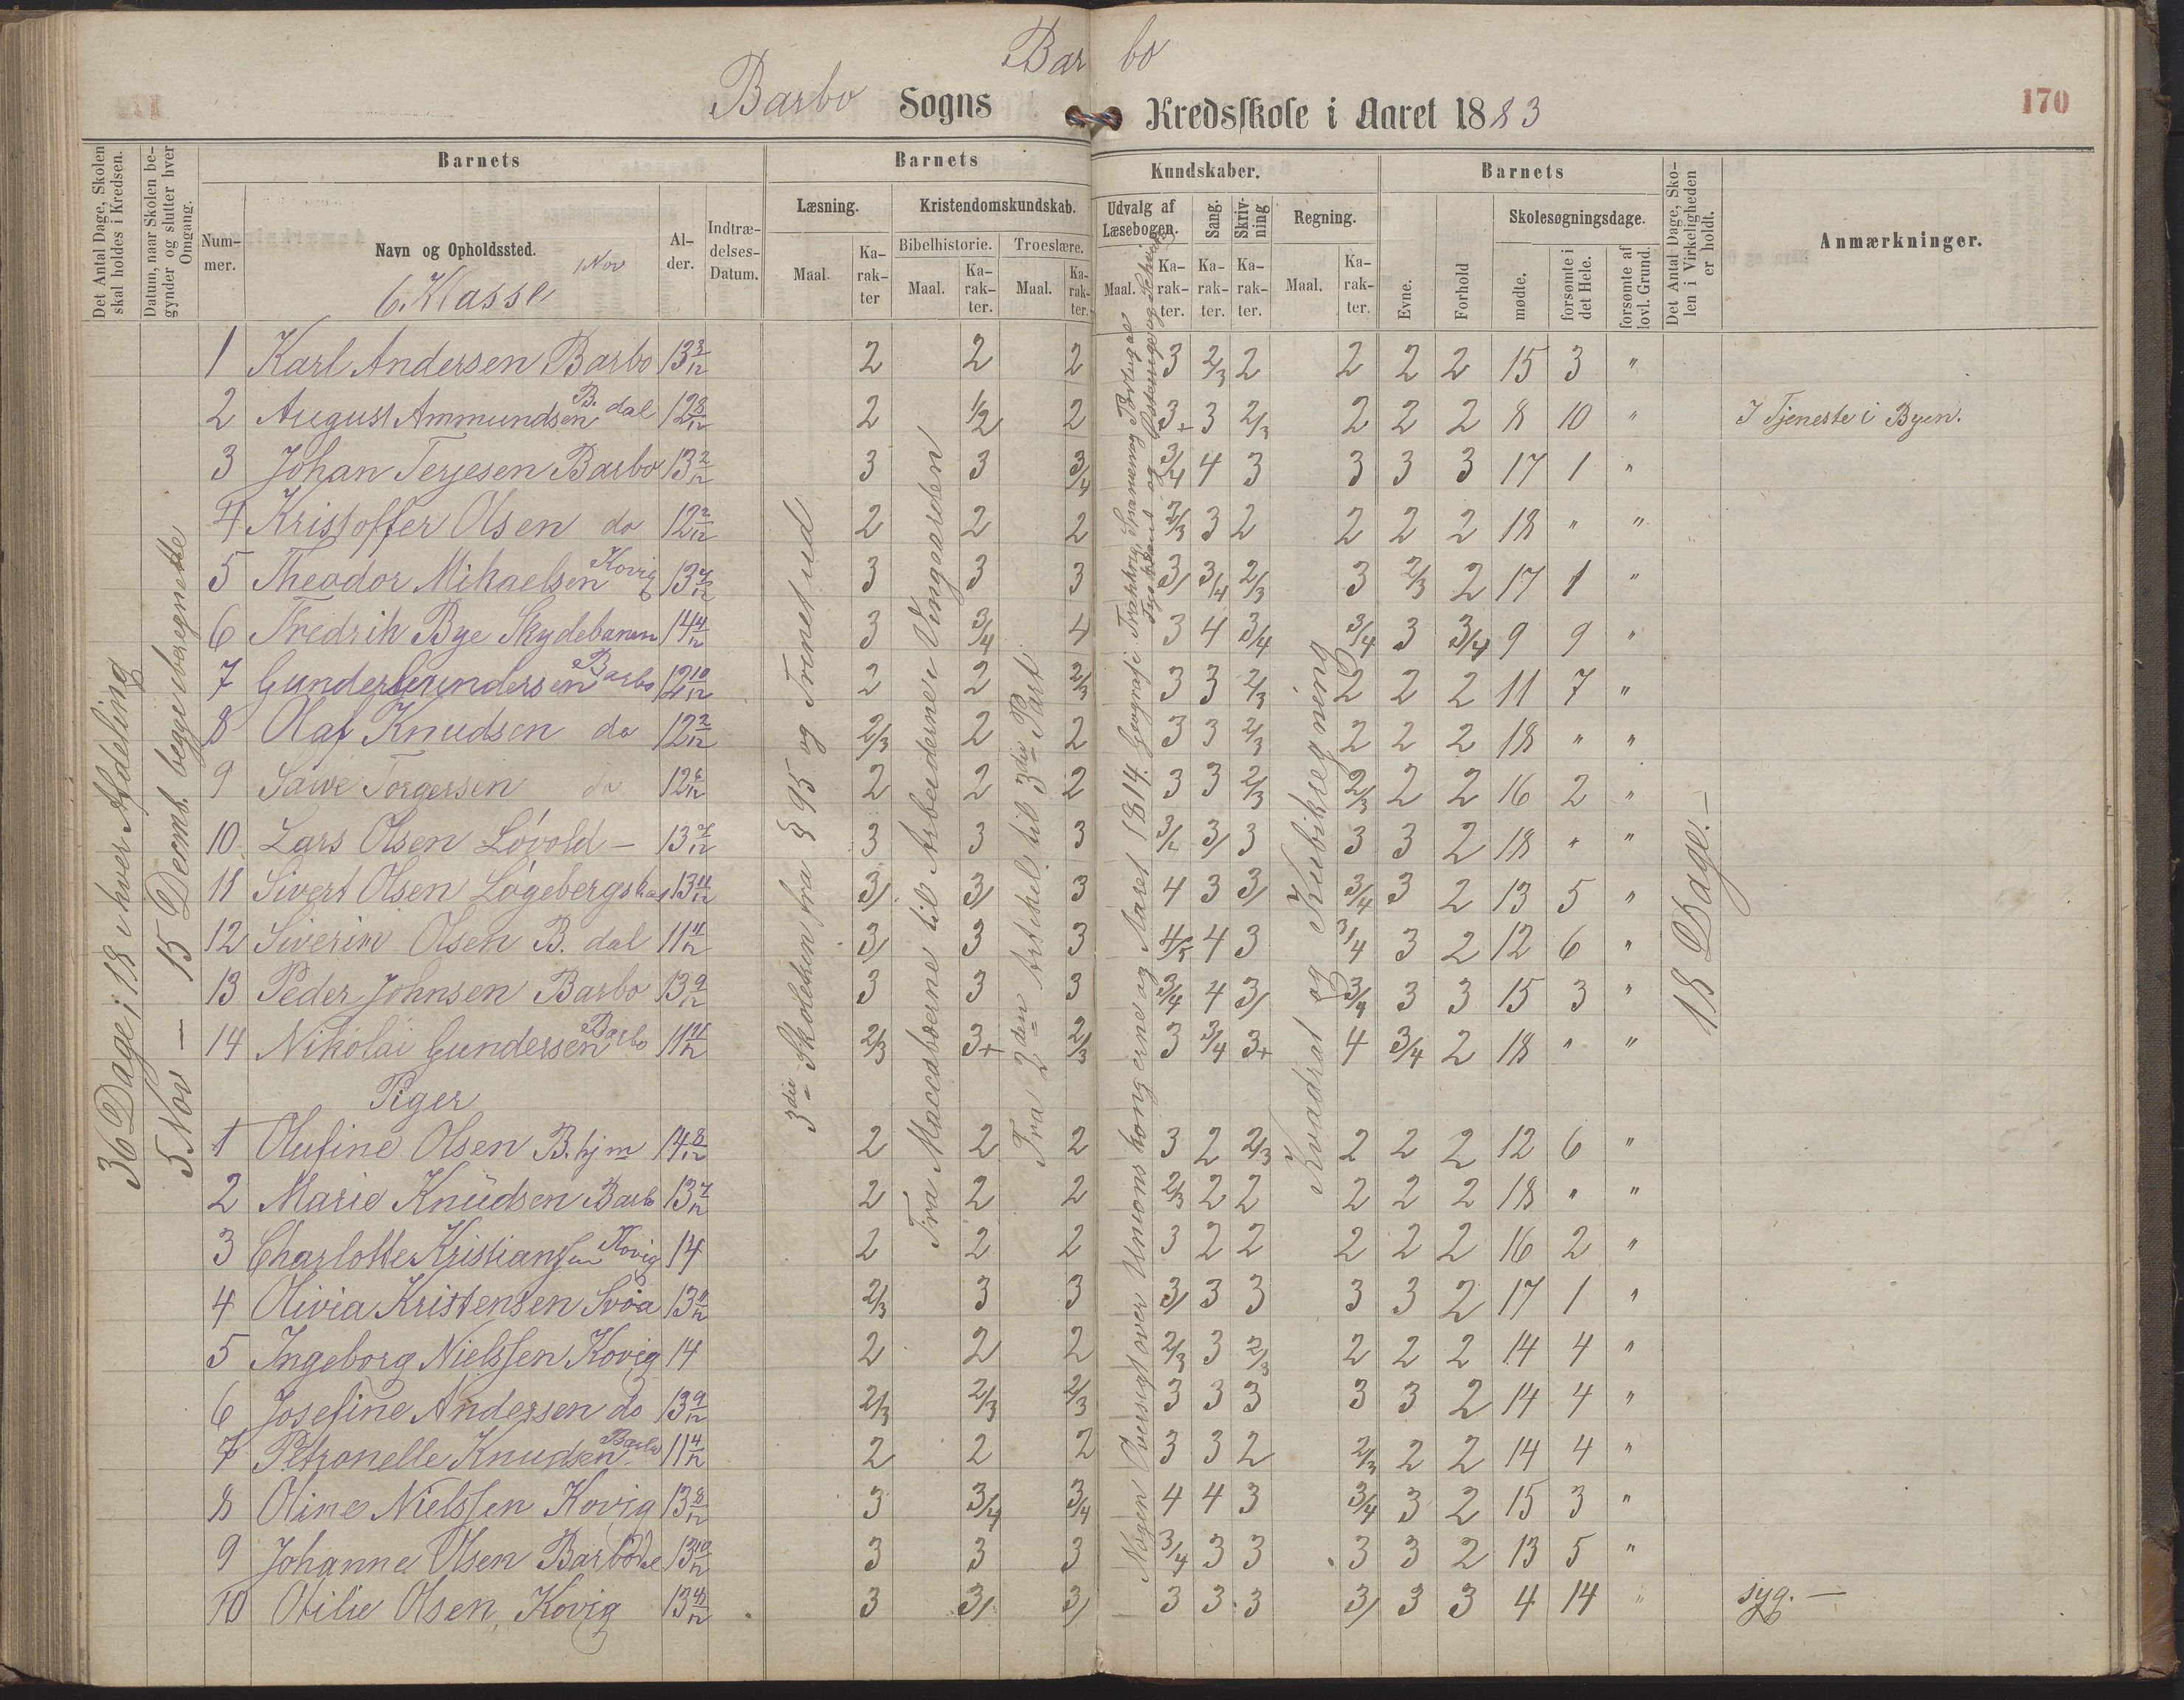 Bar bo
Barbo Sogns Kredsskole i Aaret 1883
170
Det Antal Dage, Skolen skal holdes i Kredsen.
Datum, naar Skolen begynder og slutter hver Omgang.
Barnets
Nummer.
Navn og Opholdssted.
6. Klasse
1 Nov
Alder.
Indtrædelses-Datum.
Barnets Kundskaber.
Læsning.
Maal.
Karakter
Kristendomskundskab.
Bibelhistorie.
Maal.
Karakter.
Troeslære.
Maal.
Karakter.
Udvalg af Læsebogen.
Maal.
Karakter.
Sang.
Karakter.
Skrivning
Karakter.
Regning.
Maal.
Karakter.
Barnets
Evne.
Forhold
Skolesøgningsdage.
mødte.
forsømte i det Hele.
forsømte af lovl. Grund.
Det Antal Dage, Skolen i Virkeligheden er holdt.
Anmærkninger.
36 Dage; 18 i hver Afdeling
5 Nov – 15 Decemb. begge iberegnette
3die Skoletien fra § 95 og Trinet ud
Fra Maccabæerne til Arbeiderne i Vingaarden
Fra 2den Artikel til 3die Part
Nogen Oversigt over Unionskongerne og Aaret 1814. Geografi: Frankrig, Spanien og Portugal
Kvadrat og Kubikregning
18 Dage. –
1 Karl Andersen Barbo 13 3/12 2 2 2 3 2/3 2 2 2 2 15 3 "
2 August Ammundsen B. dal 12 8/12 2 1/2 2 3+ 3 2/3 2 2 2 8 10 " I Tjeneste i Byen.
3 Johan Terjesen Barbo 13 2/12 3 3 3/4 3/4 4 3 3 3 3 17 1 "
4 Kristoffer Olsen do 12 2/12 2 2 2 2/3 3 2 2 2 2 18 " "
5 Theodor Mikaelsen Kovig 13 7/12 3 3 3 3/ 3/4 2/3 3 2/3 2 17 1 "
6 Fredrik Bye Skydebanen 14 4/12 3 3/4 4 3 4 3/4 3/4 3 3/4 9 9 "
7 Gunder Gundersen Barbo 12 10/12 2 2 2/3 3 3 2/3 2 2 2 11 7 "
8 Olaf Knudsen do 12 2/12 2/3 2 2 3 3 2/3 2 2 2 18 " "
9 Sawe Torgersen do 12 6/12 2 2 2 3 3 2/3 2/3 2 2 16 2 "
10 Lars Olsen Lövold – 13 7/12 3 3 3 3/4 3/ 3 3 3 2 18 " "
11 Sivert Olsen Lögebergskas 13 11/12 3/ 3/ 3 4 3 3/ 3/4 3 2 13 5 "
12 Siverin Olsen B. dal 11 11/12 3/ 3 3 4/5 4 3 3/4 3 2 12 6 "
13 Peder Johnsen Barbo 13 9/12 3 3 3 3/4 4 3/ 3/4 3 3 15 3 "
14 Nikolai Gundersen Barbo 11 11/12 2/3 3+ 2/3 3 3/4 3+ 4 3/4 2 18 " "
Piger
1 Olufine Olsen B. hjm 14 8/12 2 2 2 3 2 2/3 2 2 2 12 6 "
2 Marie Knudsen Barb 13 7/12 2 2 2 2/3 2 2 2 2 2 18 " "
3 Charlotte Kristiansen Kovig 14 2 2 2 3 2 2 2 2 2 16 2 "
4 Olivia Kristensen Svöa 13 11/12 2/3 3 3 3/ 3 3 3 3 2 17 1 "
5 Ingeborg Nielssen Kovig 14 2 2 2 2/3 3 2/3 2 2 2 14 4 "
6 Josefine Andersen do 13 9/12 2/3 2/3 2/3 3 3 3 3 3 2 14 4 "
7 Petronelle Knudsen Barbo 11 4/12 2 2 2 3 3 2 2/3 2 2 14 4 "
8 Oline Nielssen Kovig 13 8/12 3 3/4 3/4 4 4 3 3/4 3 2 15 3 "
9 Johanne Olsen Barbode 13 10/12 3 3 3 3/4 3 3 3 3 2 13 5 "
10 Otilie Olsen Kovig 13 3/ 3/ 3 3 3 3/ 3 3 4 14 " syg. –